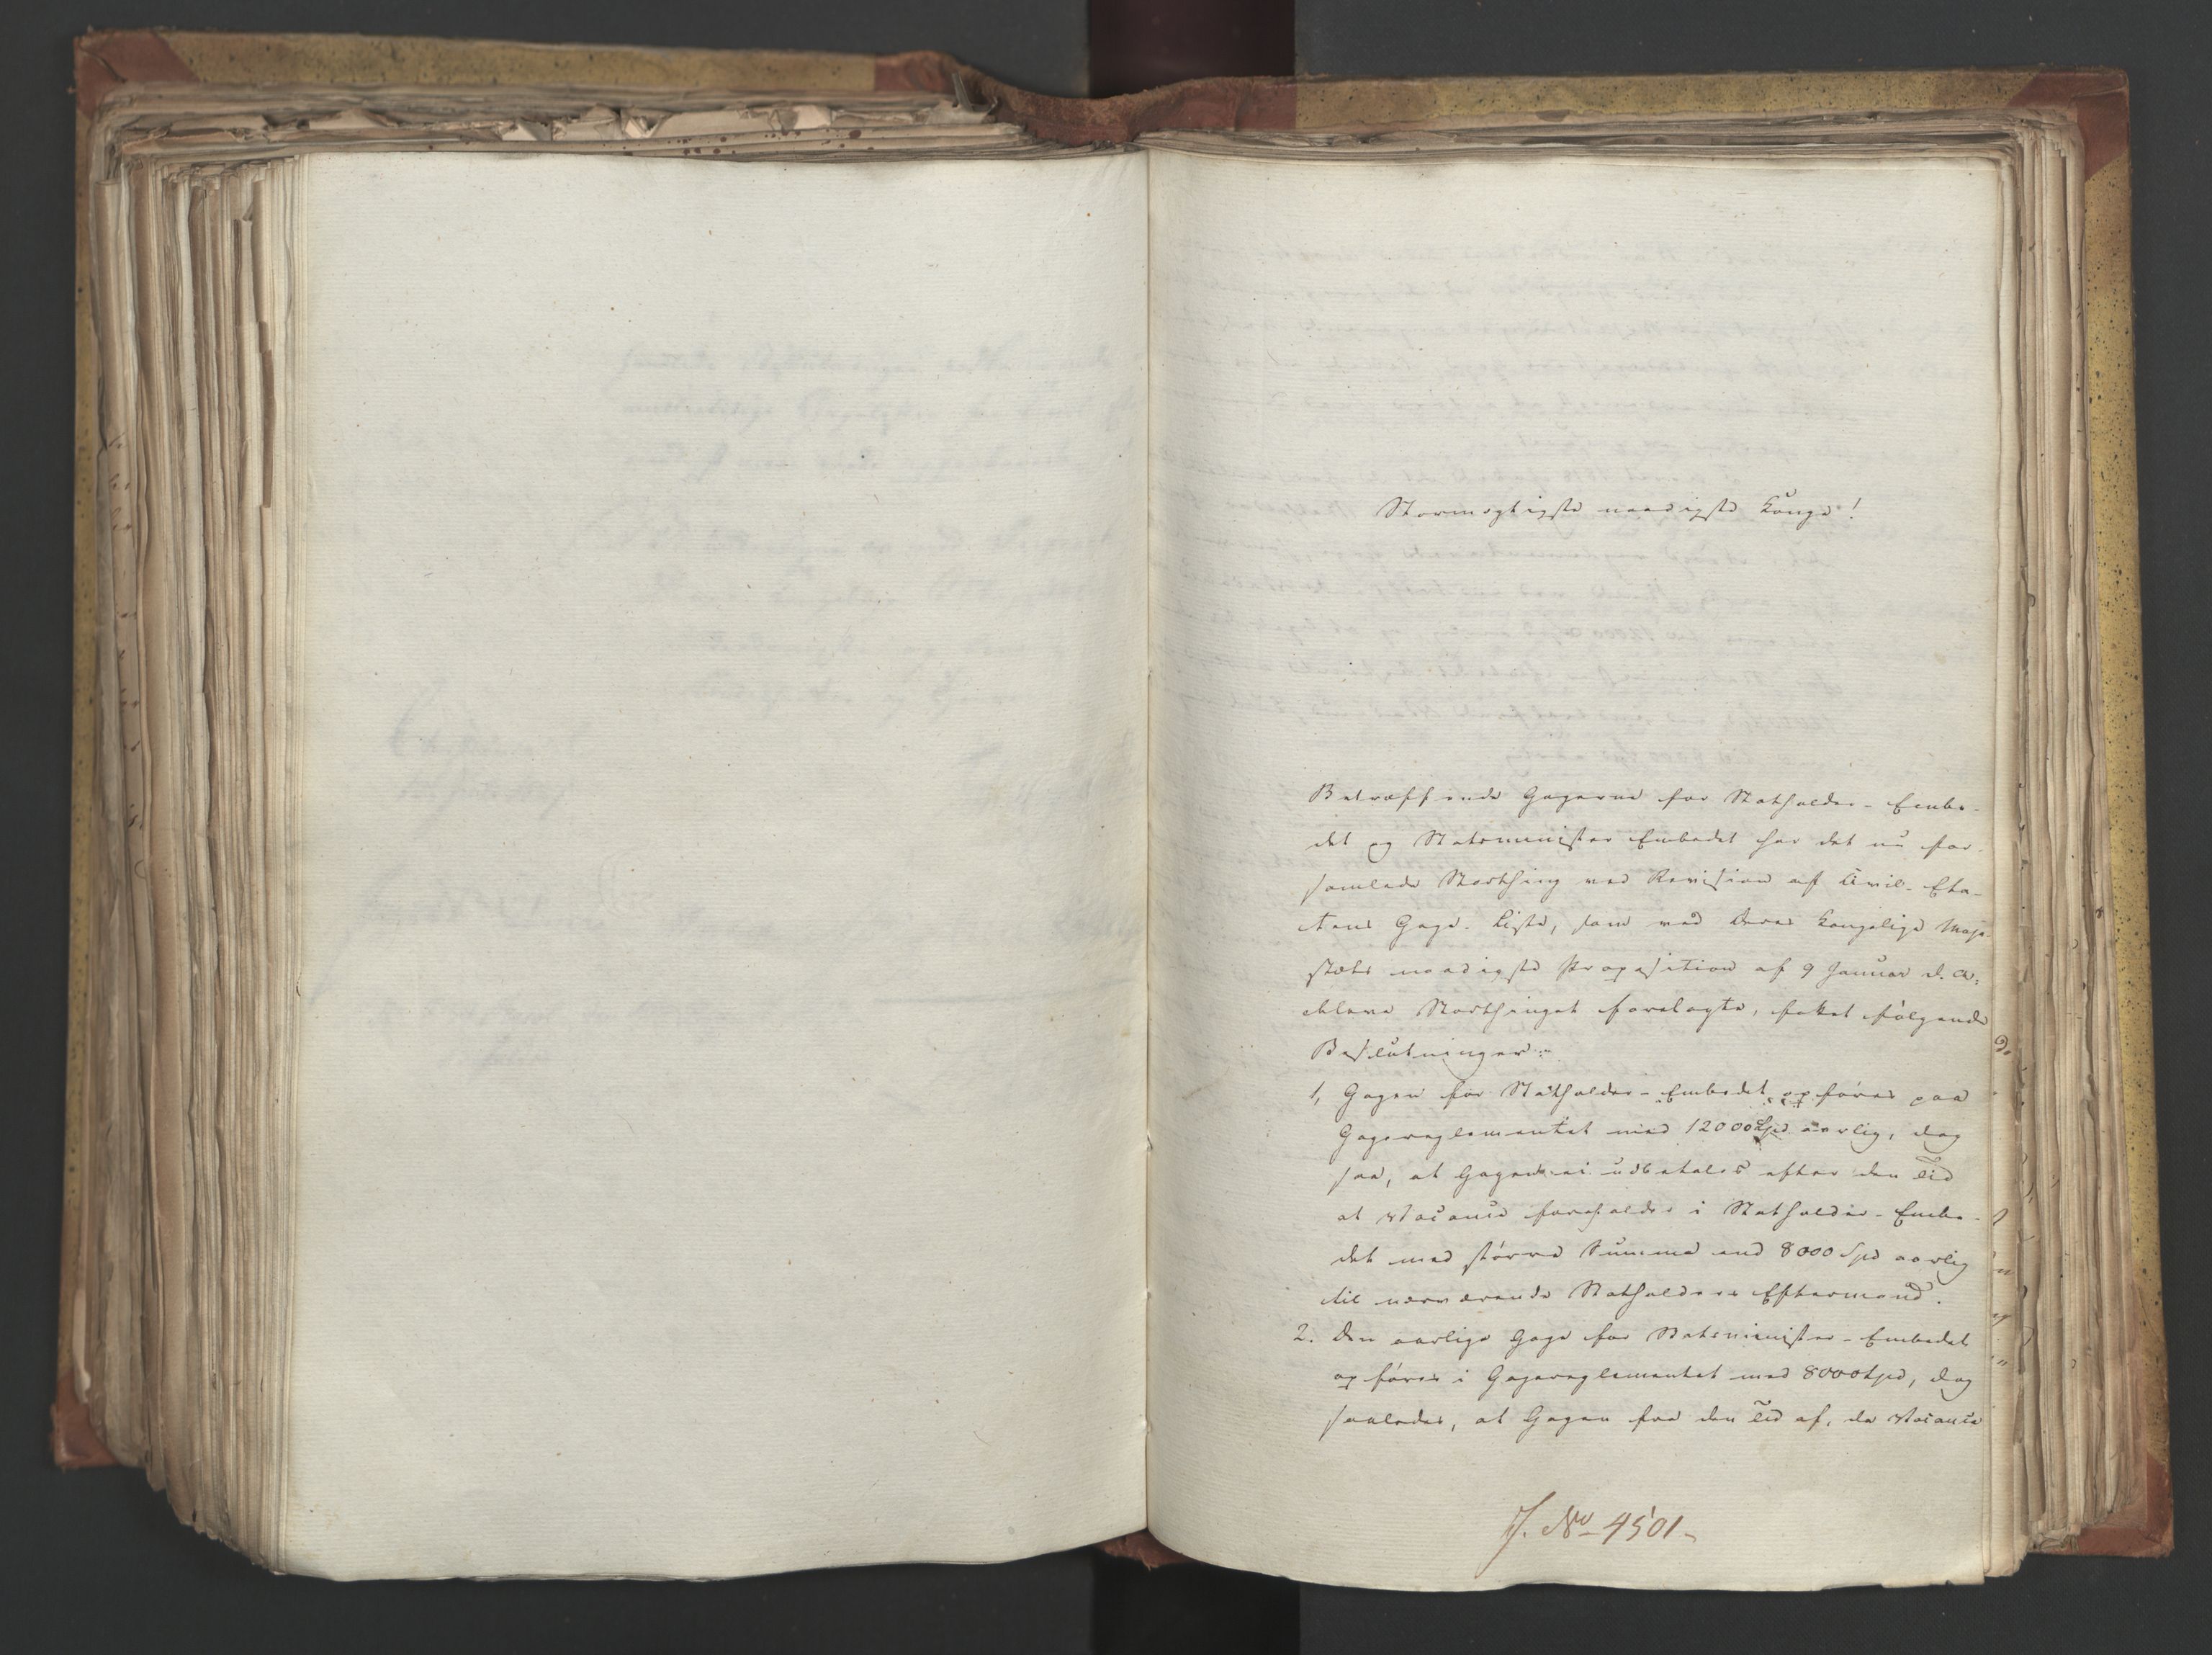 Stormægtigste naadigste Konge!
Betræffende Gagerne for Statholder-Embe-
det og Statsminister Embedet har det nu for-
samlede Storthing ved Revision af Civil-Eta-
tens Gage-Liste, som ved Deres Kongelige Maje-
stæts naadigste Proposition af 9 Januar d. A.
blev Storthinget forelagte, fattet følgende
Beslutninger:
1, Gagen for Statholder-Embedet opføres paa
Gagereglementet med 12000 Spd aarlig, dog
saa, at Gagen ei udbetales efter den Tid
at Vacance forefalder i Statholder-Embe-
det med større Summa end 8000 Spd aarlig
til nærværende Statholders Eftermand.
2. Den aarlige Gage for Statsminister-Embedet
opføres i Gagereglementet med 8000 Spd, dog
saaledes, at Gagen fra den Tid af, da Vacance
J. No 4501.